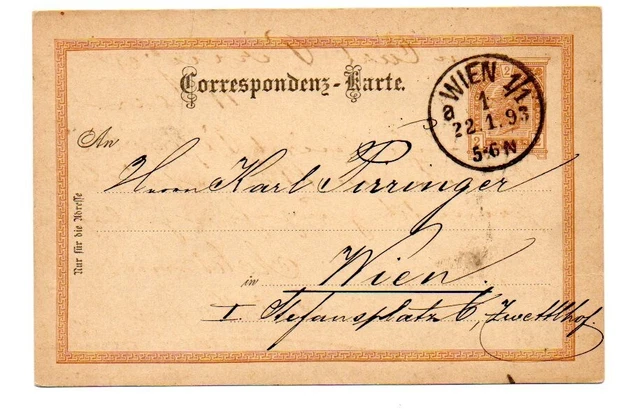 Correspondenz-Karte.
WIEN 1/1
1
a
22.1.93
5-6 N
2
2
An
Herrn Karl Pirringer
Nur für die Adresse
in Wien.
I. Stefansplatz 6, Zwettlhof.